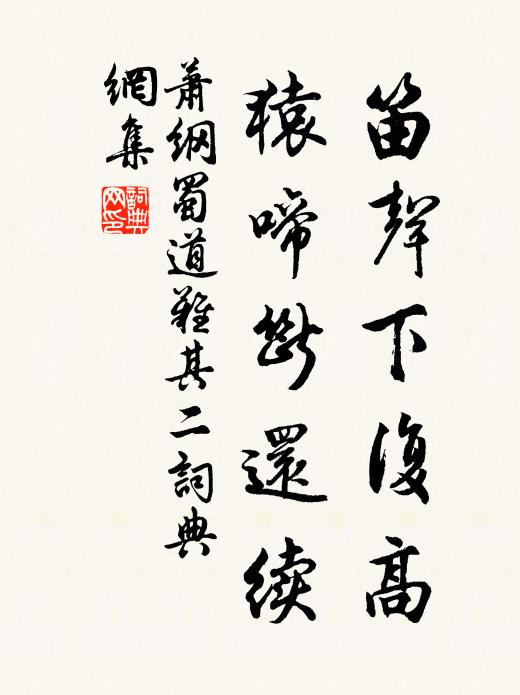 笛聲下復高
猿啼斷還续
蕭纲蜀道難其二詞典
網集
詞典
网印